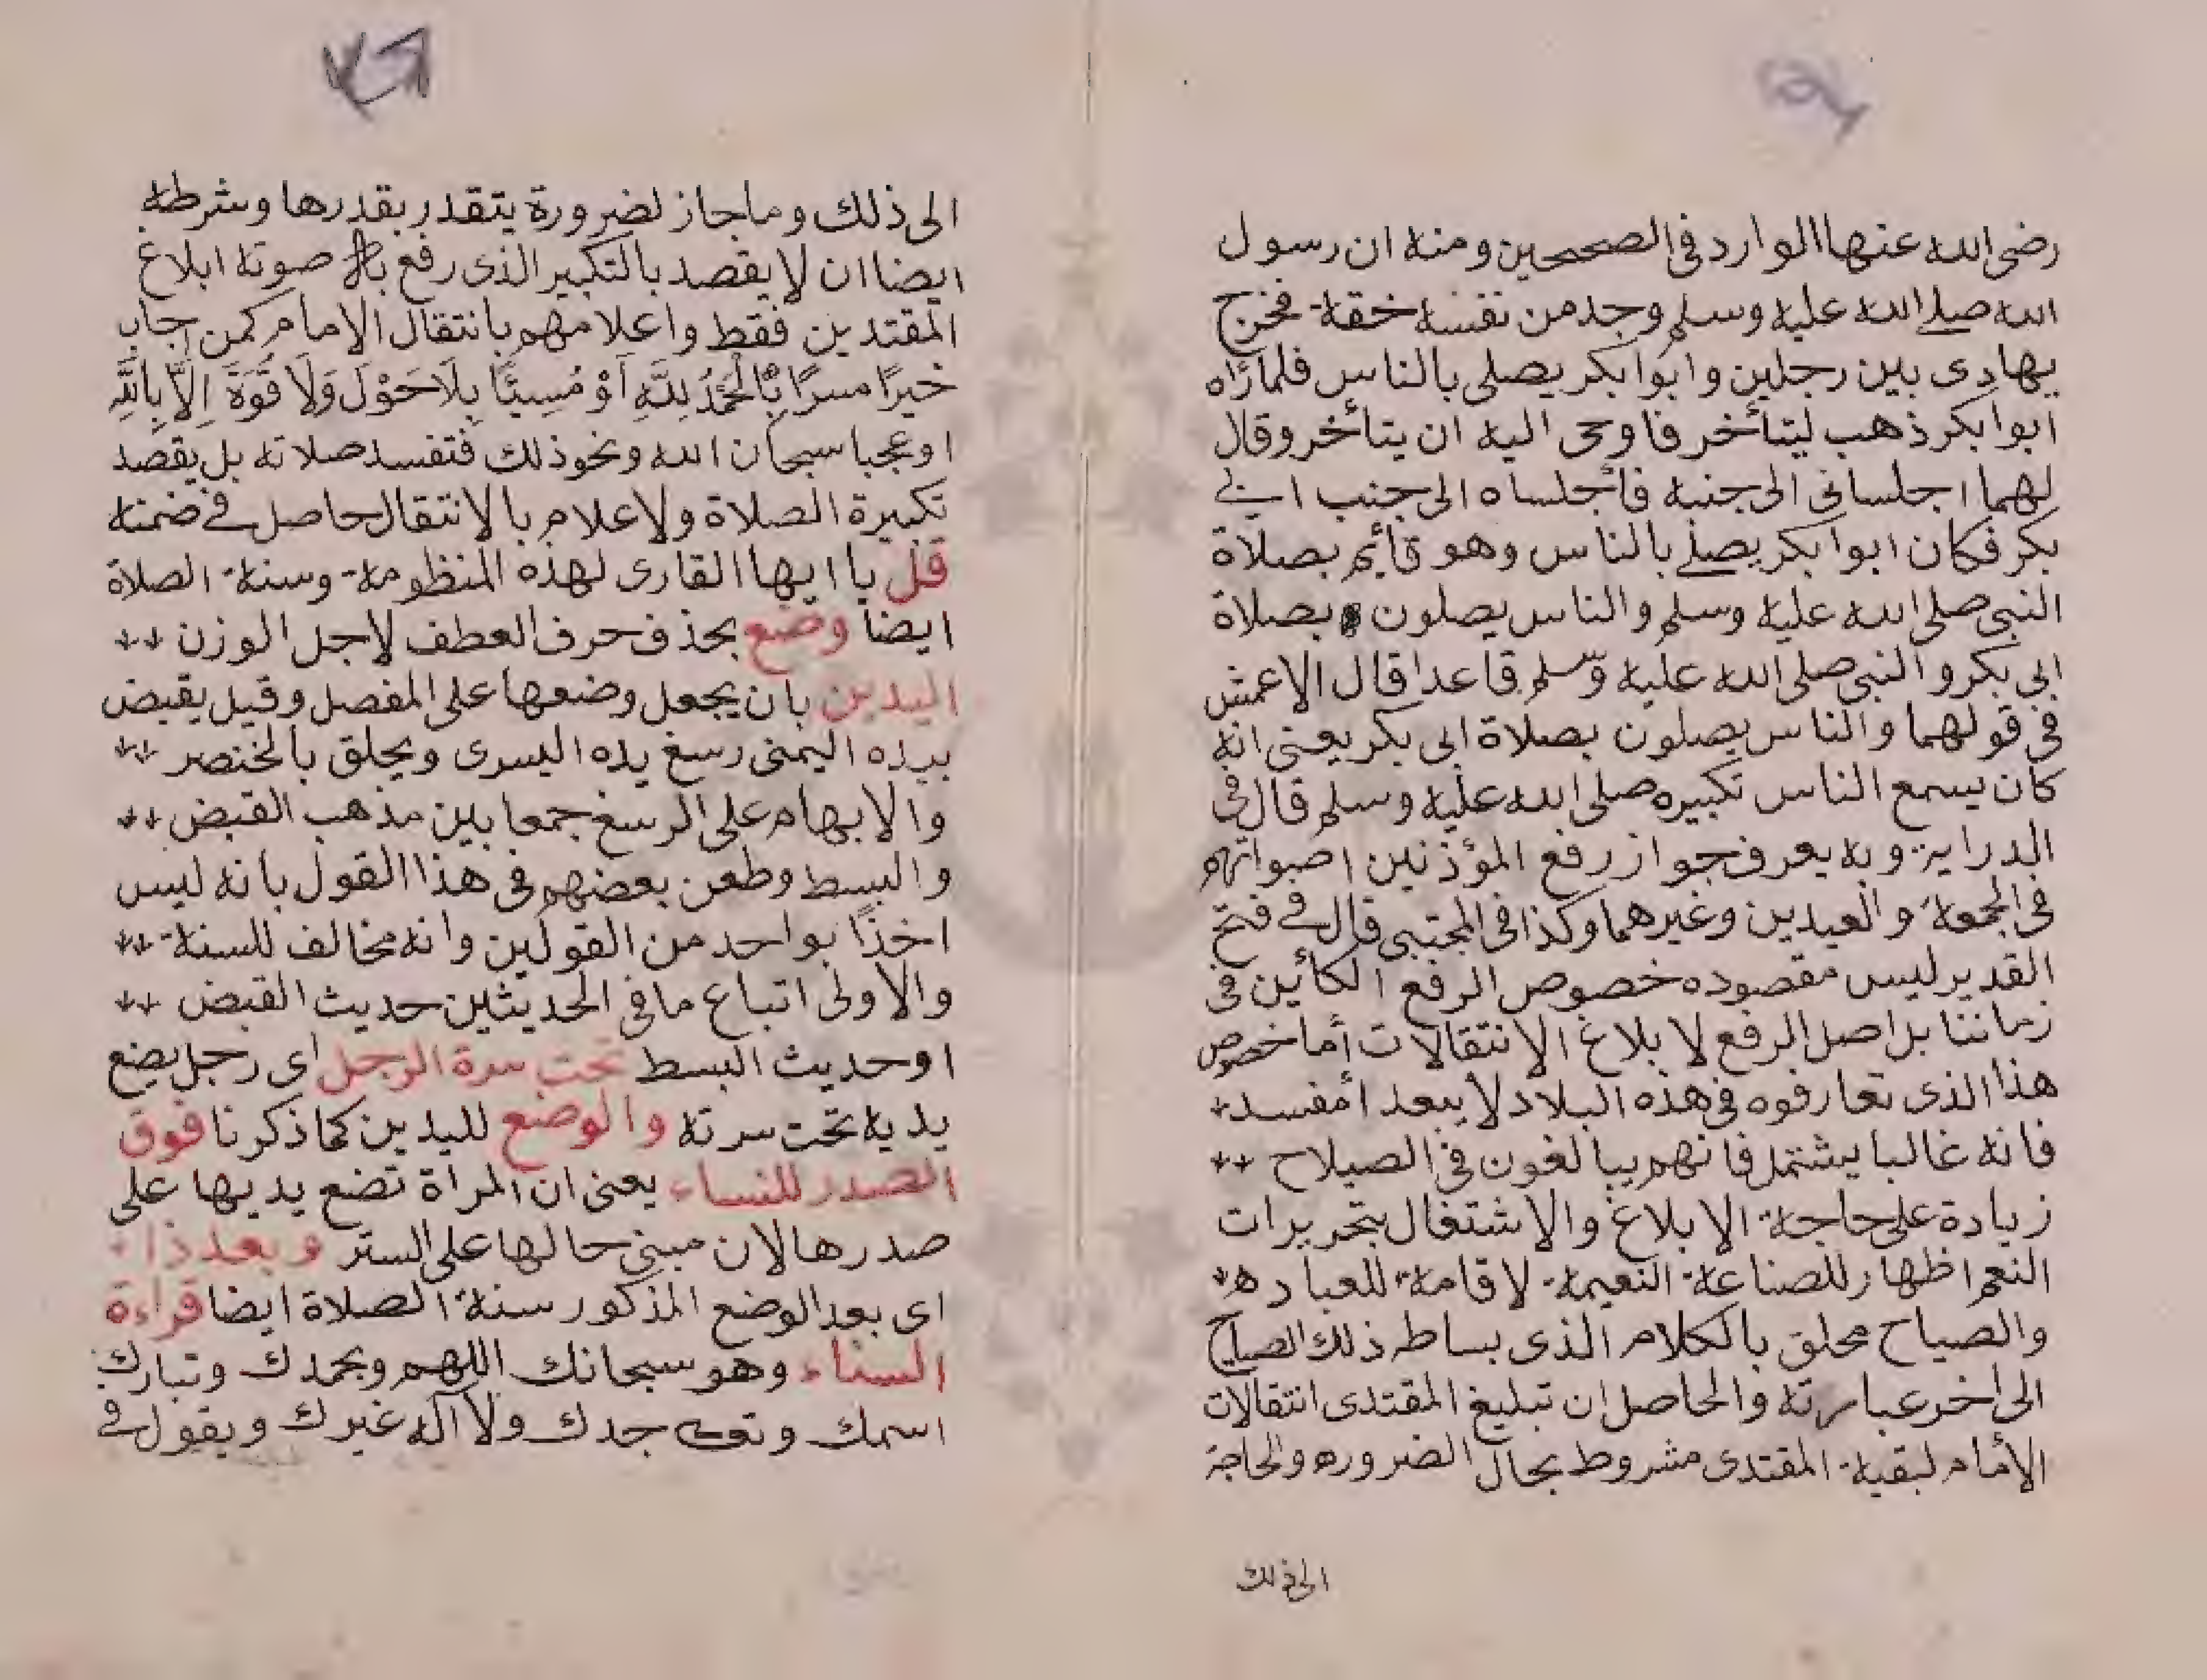 رضى الله عنها الوارد فى الصحيحين ومنه ان رسول
الله صلى الله عليه وسلم وجد من نفسه خفة فخرج
يهادى بين رجلين وابوا بكر يصلى بالناس فلما رأاه
ابوا بكر ذهب ليتأخر فاوحى اليه ان يتأخر وقال
لهما اجلسانى الى جنبه فأجلساه الى جنب ابى
بكر فكان ابوا بكر يصلى بالناس وهو قائم بصلاة
النبى صلى الله عليه وسلم والناس يصلون بصلاة
ابى بكر والنبى صلى الله عليه وسلم قاعدا قال الاعمش
فى قولهما والناس يصلون بصلاة ابى بكر يعنى انه
كان يسمع الناس تكبيره صلى الله عليه وسلم قال فى
الدراية وبه يعرف جواز رفع المؤذنين اصواتهم
فى الجمعة والعيدين وغيرهما وكذا فى المجتبى قال فى فتح
القدير ليس مقصوده خصوص الرفع الكائين فى
زماننا بل اصل الرفع لابلاغ الانتقالات أما خصوص
هذا الذى تعارفوه فى هذه البلاد لا يبعد أمفسد
فانه غالبا يشتمل فانهم يبالغون فى الصيلاح
زيادة على حاجة الابلاغ والاشتغال بتحريرات
النعم اظهار للصناعة النعيمة لاقامة للعباده
والصياح محلق بالكلام الذى بساطه ذلك الصياح
الى اخر عبارته والحاصل ان تبليغ المقتدى انتقالات
الأمام لبقية المقتدى مشروط بحال الضروره والحاجة
الى ذلك
الى ذلك وما جاز لضرورة يتقدر بقدرها وشرطه
ايضا ان لا يقصد بالتكبير الذى رفع به صوته ابلاغ
المقتدين فقط واعلامهم بانتقال الامام كمن اجاب
خيرًا مسرًا بِالْحَمْدُ لِلَّهِ أَوْ مُسِيئًا بِلَاحَوْلَ وَلَا قُوَّةَ اِلَّا بِاللَّهِ
او عجبا سبحان الله ونحو ذلك فتفسد صلاته بل يقصد
تكبيرة الصلاة ولاعلام بالانتقال حاصل فى ضمنه
قل يا ايها القارى لهذه المنظومة وسنة الصلاة
ايضا وضع بحذف حرف العطف لاجل الوزن
اليدين بان يجعل وضعها على المفصل وقيل يقبض
بيده اليمنى رسغ يده اليسرى ويحلق بالخنصر
والابهام على الرسغ جمعا بين مذهب القبض
والبسط وطعن بعضهم فى هذا القول بانه ليس
اخذًا بواحد من القولين وانه مخالف للسنة
والاولى اتباع ما فى الحديثين حديث القبض
او حديث البسط تحت سرة الرجل اى رجل يضع
يديه تحت سرته والوضع لليدين كما ذكرنا فوق
الصدر للنساء يعنى ان المراة تضع يديها على
صدرها لان مبنى حالها على الستر وبعد ذاء
اى بعد الوضع المذكور سنة الصلاة ايضا قراءة
السناء وهو سبحانك اللهم وبحمدك وتبارك
اسمك وتعـ جدك ولا آله غيرك ويقول فى